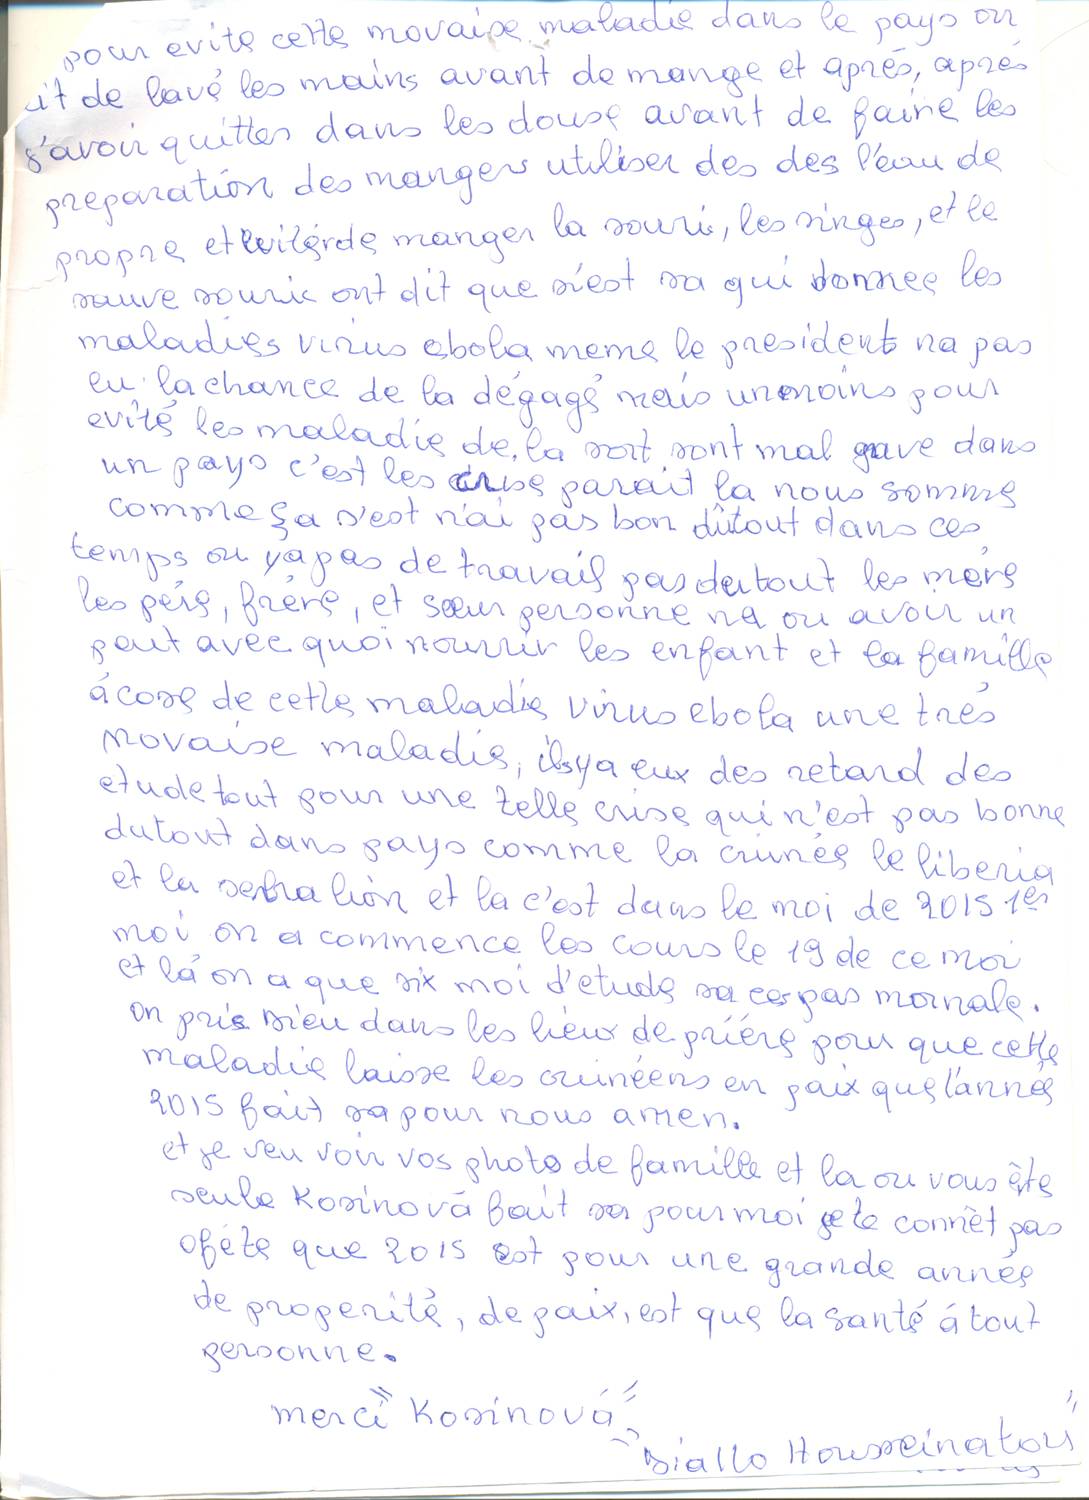 pour evite cette movaise maladie dans le pays on
it de lavé les mains avant de mange et aprés, aprés
s'avoir quitter dans les douse avant de faire les
preparation des mangers utiliser des des l'eau de
propre et manger la souri, les singes, et le
sauve souris ont dit que s'est sa qui donnee les
maladies virus ebola meme le president na pas
eu la chance de la dégagé mais unmoins pour
evité les maladie de la sort sont mal grave dans
un pays c'est les crise parait la nous somme
comme ça s'est n'ai pas bon dûtout dans ces
temps ou yapas de travail pas dutout les mére
les pére, frére, et sœur personne na ou avoir un
peut avec quoi nourrir les enfant et la famille
á cose de cette maladie virus ebola une trés
movaise maladie, ilsya eux des retard des
etude tout pour une telle crise qui n'est pas bonne
dutout dans pays comme la Guinée le liberia
et la serra lion et la c'est dans le moi de 2015 1er
moi on a commence les cours le 19 de ce moi
et lá on a que six moi d'etude sa ces pas mornale.
on prie Dieu dans les lieux de priére pour que cette
maladie laisse les Guinéens en paix que l'année
2015 fait sa pour nous amen.
et je veu voir vos photo de famille et la ou vous éte
seule Kosinová fait sa pour moi je te connèt pas
oféte que 2015 est pour une grande année
de properité, de paix, est que la santé á tout
personne.
merci " Kosinová "
" Diallo Housseinatou "